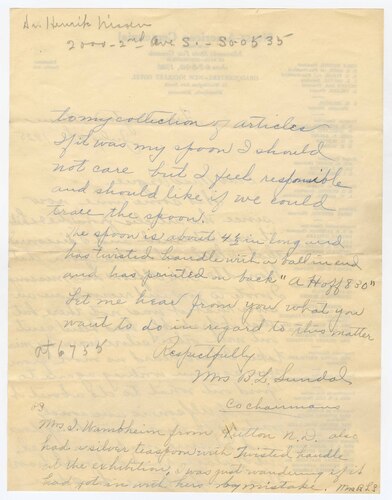 Dr. Henrik Nissen
2000-2nd Ave S. - So 0535
to my collection of articles
If it was my spoon I should
not care but I feel responsible
and should like if we could
trace the spoon.
The spoon is about 4½ in long and
has twisted handle with a ball in end
and has printed on back "A Hoff 830"
Let me hear from you what you
want to do in regard to this matter
Respectfully
Mrs B L Sundal
Cochairmans
Mrs. I. Wambheim from Hatton N.D. also
had a silver teaspoon with Twisted handle
at the exhibition, I was just wandering if it
had got in with hers by mistake. Mrs B L S